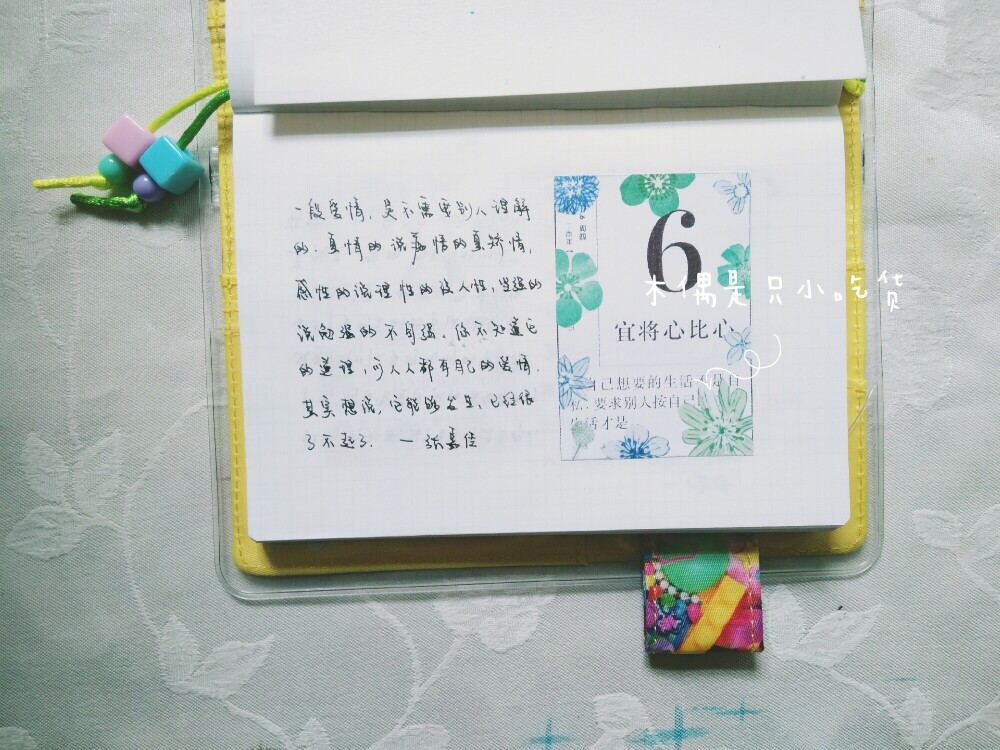 一段爱情,是不需要别人理解
的.真情的说痴情的真矫情,
感性的说理性的没人性,坚强的
说勉强的不自强。你不知道它
的道理,可人人都有自己的爱情.
其实想说,它能够发生,已经很
了不起了. 一 张嘉佳
6
宜将心比心
自己想要的生活不是自
私,要求别人按自己
生活才是
木偶是只小吃货
me